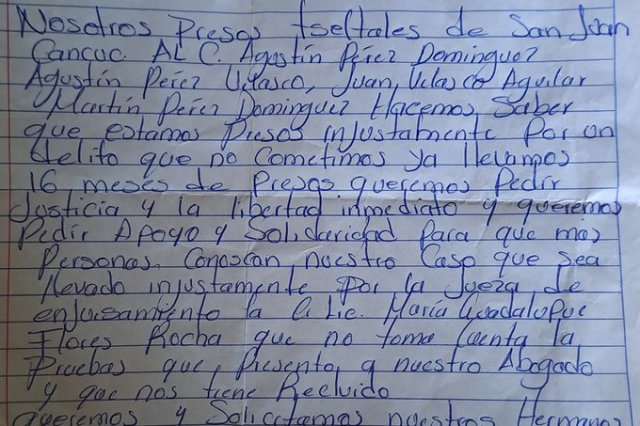 Nosotros Presos tseltales de San Juan
Cancuc. AL C. Agustín Pérez Domínguez
Agustín Pérez Velasco, Juan Velasco Aguilar
Martín Pérez Domínguez Hacemos Saber
que estamos Presos injustamente Por un
delito que no Cometimos ya llevamos
16 meses de Presos queremos Pedir
Justicia y la libertad inmediato y queremos
Pedir Apoyo y Solidaridad Para que mas
Personas Conoscan nuestro Caso que sea
llevado injustamente Por la Jueza de
enjuisamiento la Lic. María Guadalupe
Flores Rocha que no toma Cuenta la
Pruebas que Presento a nuestro Abogado
y que nos tiene Recluido
queremos y Solicitamos nuestros Hermanos